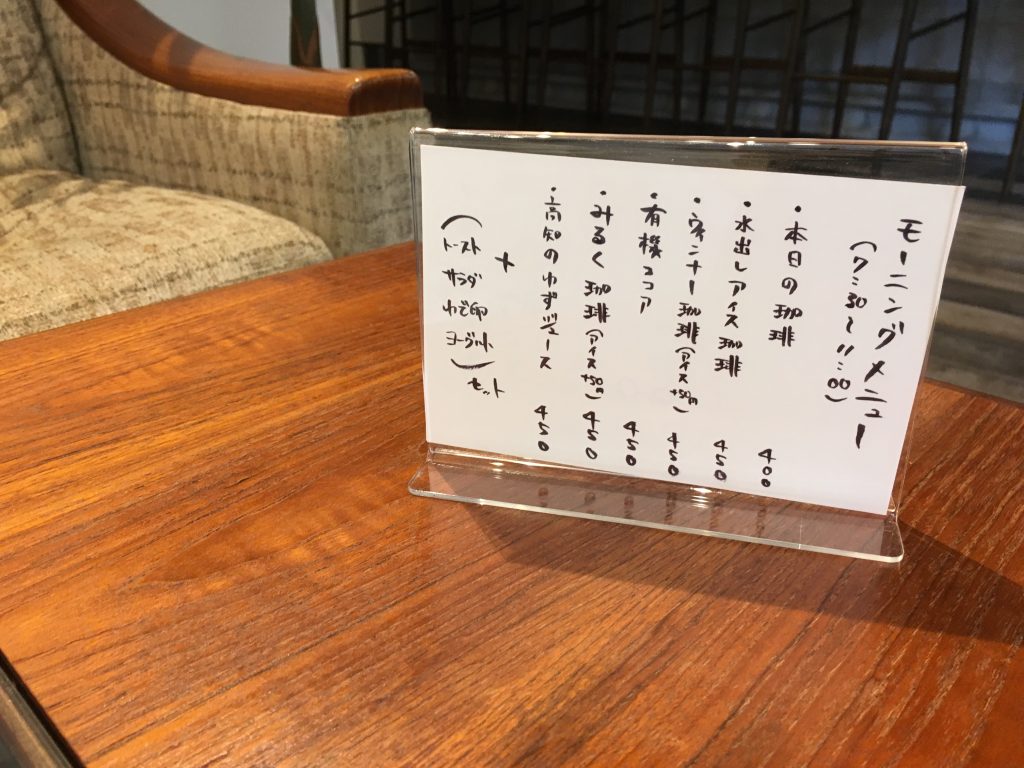 モーニングメニュー
(7:30〜11:00)
・本日の珈琲 400
・水出しアイス珈琲 450
・ウィンナー珈琲(アイス+50円) 450
・有機ココア 450
・みるく珈琲(アイス+50円) 450
・高知のゆずジュース 450
+
(トースト
サラダ
ゆで卵
ヨーグルト)
セット